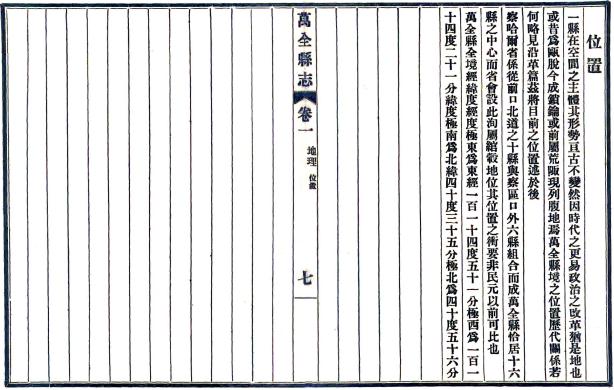 位置
一縣在空間之主體其形勢亘古不變然因時代之更易政治之改革猶是地也
或昔爲甌脫今成鎖鑰或前屬荒陬現列腹地焉萬全縣境之位置歷代關係若
何略見沿革篇茲將目前之位置述於後
察哈爾省係從前口北道之十縣與察區口外六縣組合而成萬全縣恰居十六
縣之中心而省會設此洵屬綰轂地位其位置之衝要非民元以前可比也
萬全縣全境經緯度經度極東爲東經一百一十四度五十一分極西爲一百一
十四度二十一分緯度極南爲北緯四十度三十五分極北爲四十度五十六分
萬全縣志
卷一
地理
位置
七